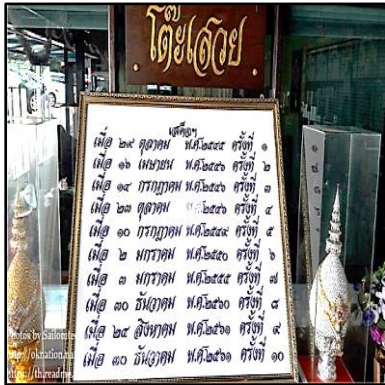 โต๊ะเสวย
เสด็จฯ
เมื่อ ๒๙ ตุลาคม พ.ศ.๒๕๔๕ ครั้งที่ ๑
เมื่อ ๑๖ เมษายน พ.ศ.๒๕๔๖ ครั้งที่ ๒
เมื่อ ๑๔ กรกฎาคม พ.ศ.๒๕๔๖ ครั้งที่ ๓
เมื่อ ๒๓ ตุลาคม พ.ศ.๒๕๔๖ ครั้งที่ ๔
เมื่อ ๑๐ กรกฎาคม พ.ศ.๒๕๔๙ ครั้งที่ ๕
เมื่อ ๒ มกราคม พ.ศ.๒๕๕๐ ครั้งที่ ๖
เมื่อ ๓ มกราคม พ.ศ.๒๕๕๕ ครั้งที่ ๗
เมื่อ ๓๐ ธันวาคม พ.ศ.๒๕๖๐ ครั้งที่ ๘
เมื่อ ๒๕ สิงหาคม พ.ศ.๒๕๖๑ ครั้งที่ ๙
เมื่อ ๓๐ ธันวาคม พ.ศ.๒๕๖๑ ครั้งที่ ๑๐